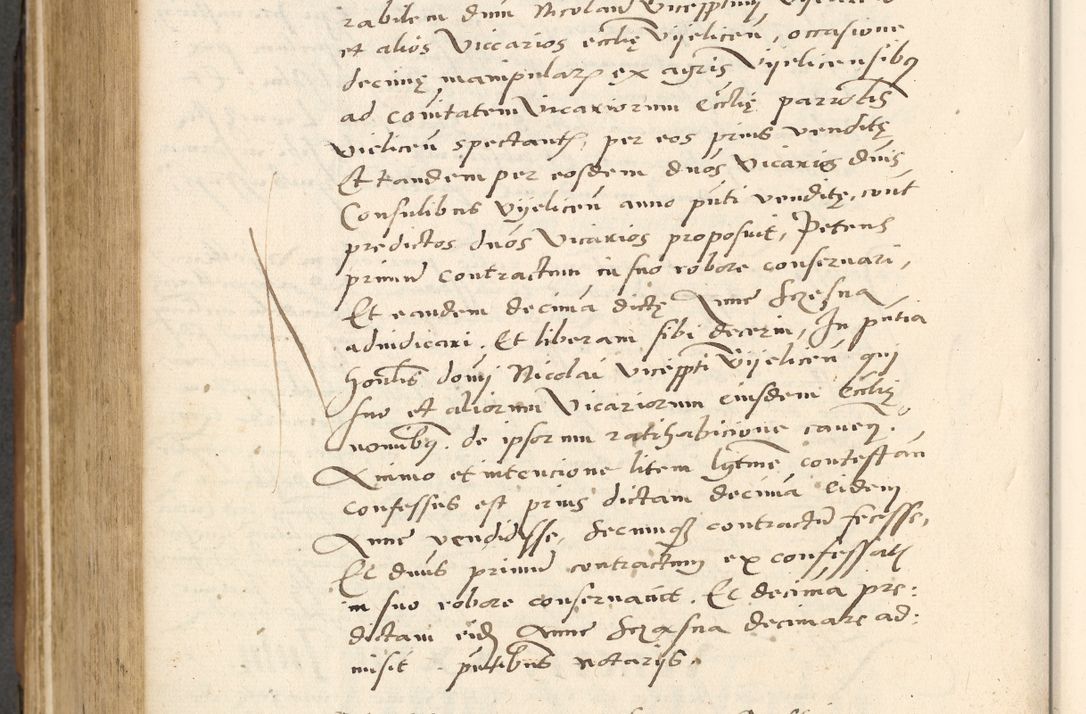 rabilem dnm Nicolaū vicepptum
et alios viccarios ecclię Vijelicen, occasione
decimę manipular ex agris Vijelicensibq
ad comitatem vicariorum Ecclię parrotlis
vielicen spectant, per eos prius venditę
Et tandem per eosdem dnos Vicarios dnis
Consulibus Vijelicen anno pnti venditę, cont
predictos dnos vicarios proposuit, Petens
primum contractum in suo robore conservari,
Et eandem decimā dictę Anne Sczesna
adiudicari. Et liberam sibi decerni, In pntia
honlis domj Nicolai viceppti Vijelicen qui
suo et aliorum Vicariorum eiusdem Ecclię
nomibq. de ipsorum ratihabicione caven.
Animo et intencione litem lgtme contestan
confessus est prius dictam decimā eidem
Anne vendidisse, Secumq contractū fecisse,
Et dnus primum contractum ex confessatis
in suo robore conservavit. Et decimā pre:
dictam eid Anne Sczesna decimare ad:
misit. pntibus notarijs.